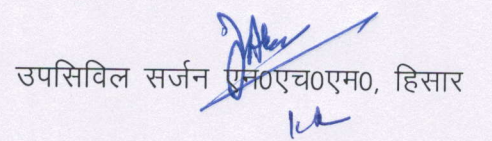 उपसिविल सर्जन एन0एच0एम0, हिसार